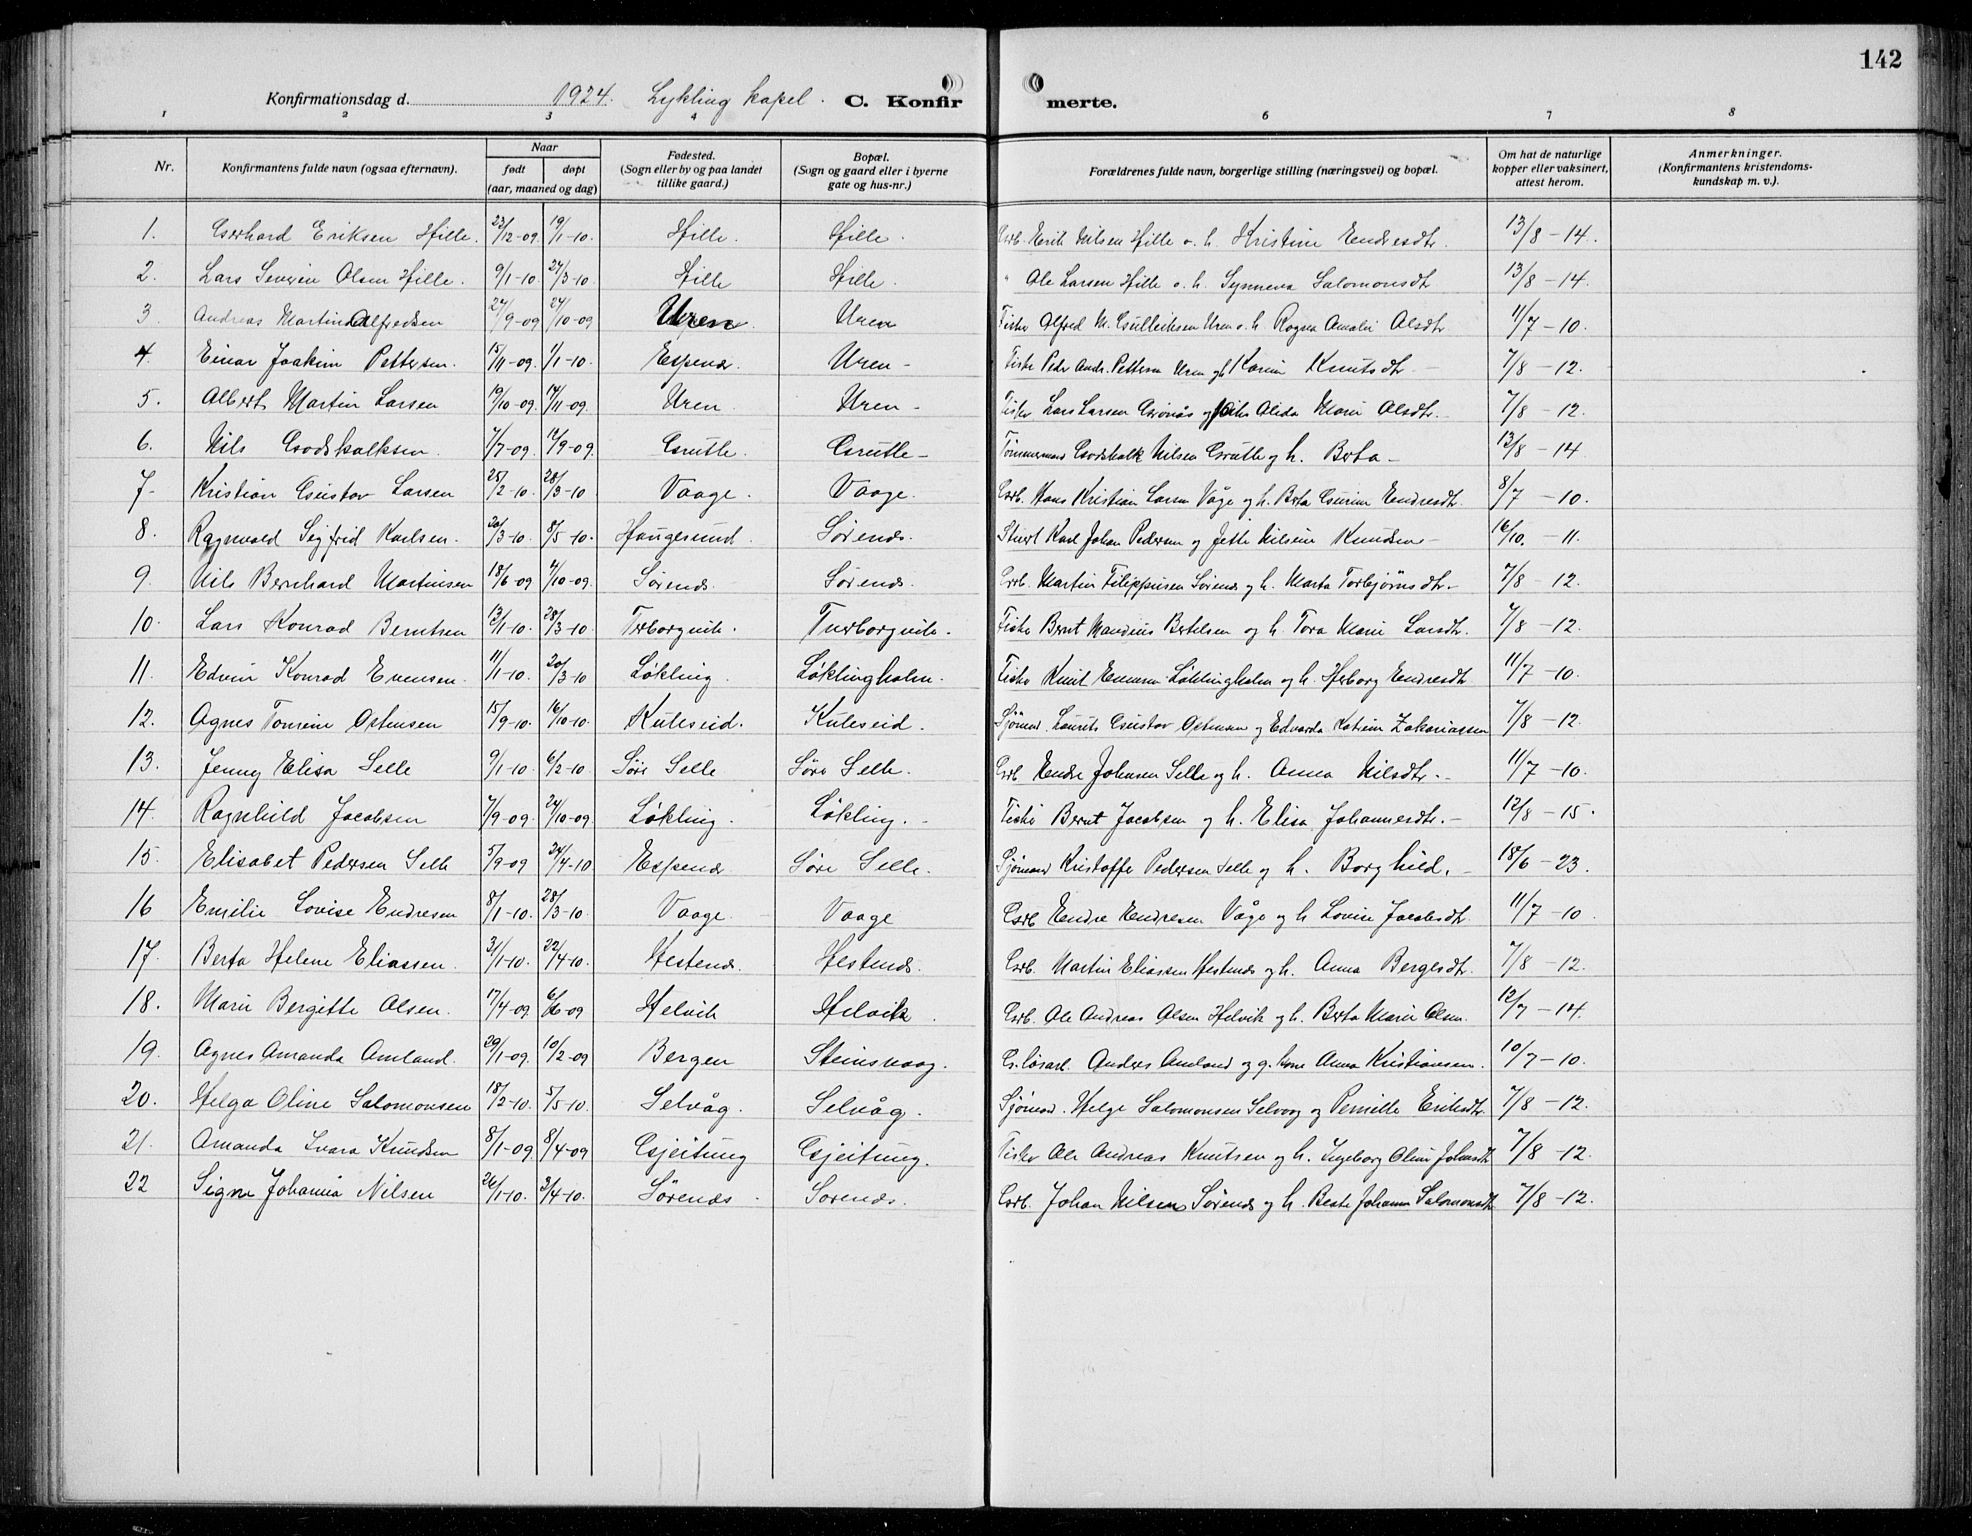 142
Konfirmationsdag d. 1924. Lykling kapel. C. Konfir merte.
1 2 3 4 6 7 8
Nr. Konfirmantens fulde navn (ogsaa efternavn). Naar født døpt (aar, maaned og dag) Fødested. (Sogn eller by og paa landet tillike gaard.) Bopæl. (Sogn og gaard eller i byerne gate og hus-nr.) Forældrenes fulde navn, borgerlige stilling (næringsvei) og bopæl. Om hat de naturlige kopper eller vaksinert, attest herom. Anmerkninger. (Konfirmantens kristendoms-kundskap m. v.).
1. Gerhard Eriksen Hille. 23/12-09. 19/1-10. Hille. Hille. Grb. Erik Nilsen Hille o. h. Kristine Endresdtr. 13/8-14.
2. Lars Severin Olsen Hille. 9/1-10. 27/3-10. Hille Hille. " Ole Larsen Hille o. h. Synneva Salomonsdtr 13/8-14.
3. Andreas Martin Alfredsen 27/9-09 24/10-09 Uren. Uren Fisker Alfred M. Gulleiksen Uren o. h. Ragna Amalie Olsdtr 11/7-10.
4. Einar Joakim Pettersen. 15/11-09. 1/1-10. Espenes. Uren- Fisker Peder Andr. Pettersen Uren og h. Karine Knutsdtr- 7/8-12.
5. Albert Martin Larsen 19/10-09. 14/11-09. Uren. Uren- Fisker Lars Larsen Grønås og Alida Marie Olsdtr.- 7/8-12.
6. Nils Godskalksen. 7/7-09. 12/9-09. Grutle. Grutle- Tømmermand Godskalk Nilsen Grutle og h. Berta- 13/8-14
7- Kristian Gustav Larsen 25/2-10. 28/3-10 Vaage. Vaage. Grb. Hans Kristian Larsen Våge og h. Berta Gurine Endresdtr. 8/7-10.
8. Ragnvald Sigfrid Karlsen. 20/3-10. 8/5-10. Haugesund. Sørenes. Stuert Karl Johan Pedersen og Jette Nilsine Knudsen- 16/10.-11.
9. Nils Bernhard Martinsen 18/6-09 4/10-09. Sørenes. Sørenes. Grb. Martin Filippusen Sørenes og h. Marta Torbjørnsdtr.- 7/8-12.
10. Lars Konrad Berntsen 13/1-10. 28/3-10. Turborgvik. Turborgvik. Fisker Bernt Mandius Bertelsen og h. Tora Marie Larsdtr. 7/8-12.
11. Edvin Konrad Evensen. 11/1-10. 20/3-10 Løkling. Løklingholm. Fisker Knut Evensen Løklingholm og h. Herborg Endresdtr 11/7-10.
12. Agnes Tomine Ostensen 15/9-10. 16/10-10. Kuleseid. Kuleseid. Sjømand. Laurits Gustav Ostensen og Edvarda Katrine Zakariassen 7/8-12.
13. Jenny Elisa Selle 9/1-10. 6/2-10. Søre Selle Søre Selle. Grb Endre Johnsen Selle og h. Anna Nilsdtr.- 11/7-10.
14. Ragnhild Jacobsen 7/9-09. 24/10-09. Løkling. Løkling.- Fisker Bernt Jacobsen og h. Elisa Johannesdtr.- 12/8-15.
15. Elisabet Pedersen Selle 5/9-09 24/4-10 Espenes Søre Selle. Sjømand Kristoffer Pedersen Selle og h. Borghild.- 18/6-23.
16 Emilie Lovise Endresen 8/1-10. 28/3-10. Vaage. Vaage Grb Endre Endresen Våge og h Lovise Jacobsdtr. 11/7-10.
17. Berta Helene Eliassen. 3/1-10. 22/4-10. Hestenes. Hestenes. Grb. Martin Eliassen Hestenes og h. Anna Bergesdtr. 7/8-12.
18. Marie Bergitte Olsen. 17/4-09. 6/6-09 Helvik Helvik. Grb. Ole Andreas Olsen Helvik og h. Berta Marie Olsen. 12/7-14.
19. Agnes Amanda Amland. 29/1-09. 10/2-09 Bergen Steinsvaag. G. løsarb. Anders Amland og g. kone Anna Kristiansen. 10/7-10.
20. Helga Oline Salomonsen 18/2-10. 5/5-10. Selvåg. Selvåg. Sjømand. Helge Salomonsen Selvåg og Pernille Eriksdtr. 7/8-12.
21. Amanda Svara Knudsen 8/1-09. 8/4-09 Gjeitung Gjeitung. Fisker Ole Andreas Knutsen og h. Ingeborg Oline Johnsdtr 7/8-12.
22 Signe Johanna Nilsen 26/1-10. 3/4-10. Sørenes. Sørenes. Grb. Johan Nilsen Sørenes og h. Beate Johanna Salomonsdtr 7/8-12.